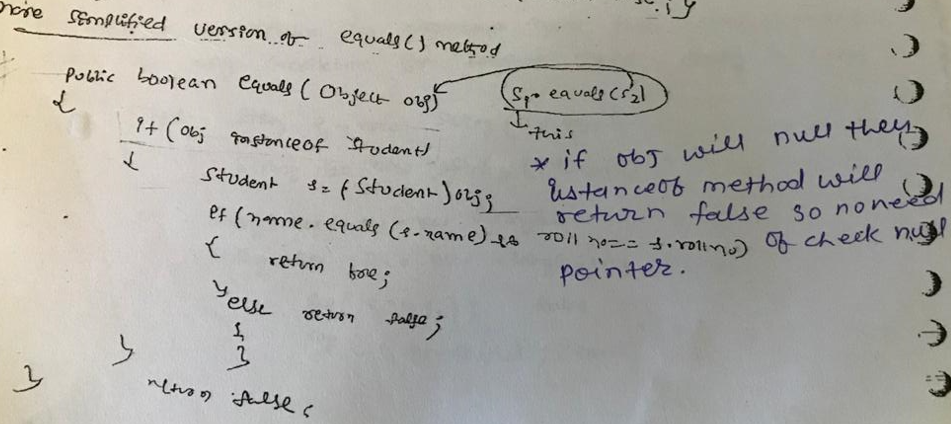 more simplified version of equals() method
Public boolean equals ( Object obj)
S1. equals (s2)
this
{
if (obj instanceof Student)
{
Student s = (Student) obj;
if (name. equals (s.name) && roll no == s.rollno)
{
return true;
} else return false;
}
}
}
return false;
}
* if obj will null they
instanceof method will
return false so noneed
of check null
pointer.